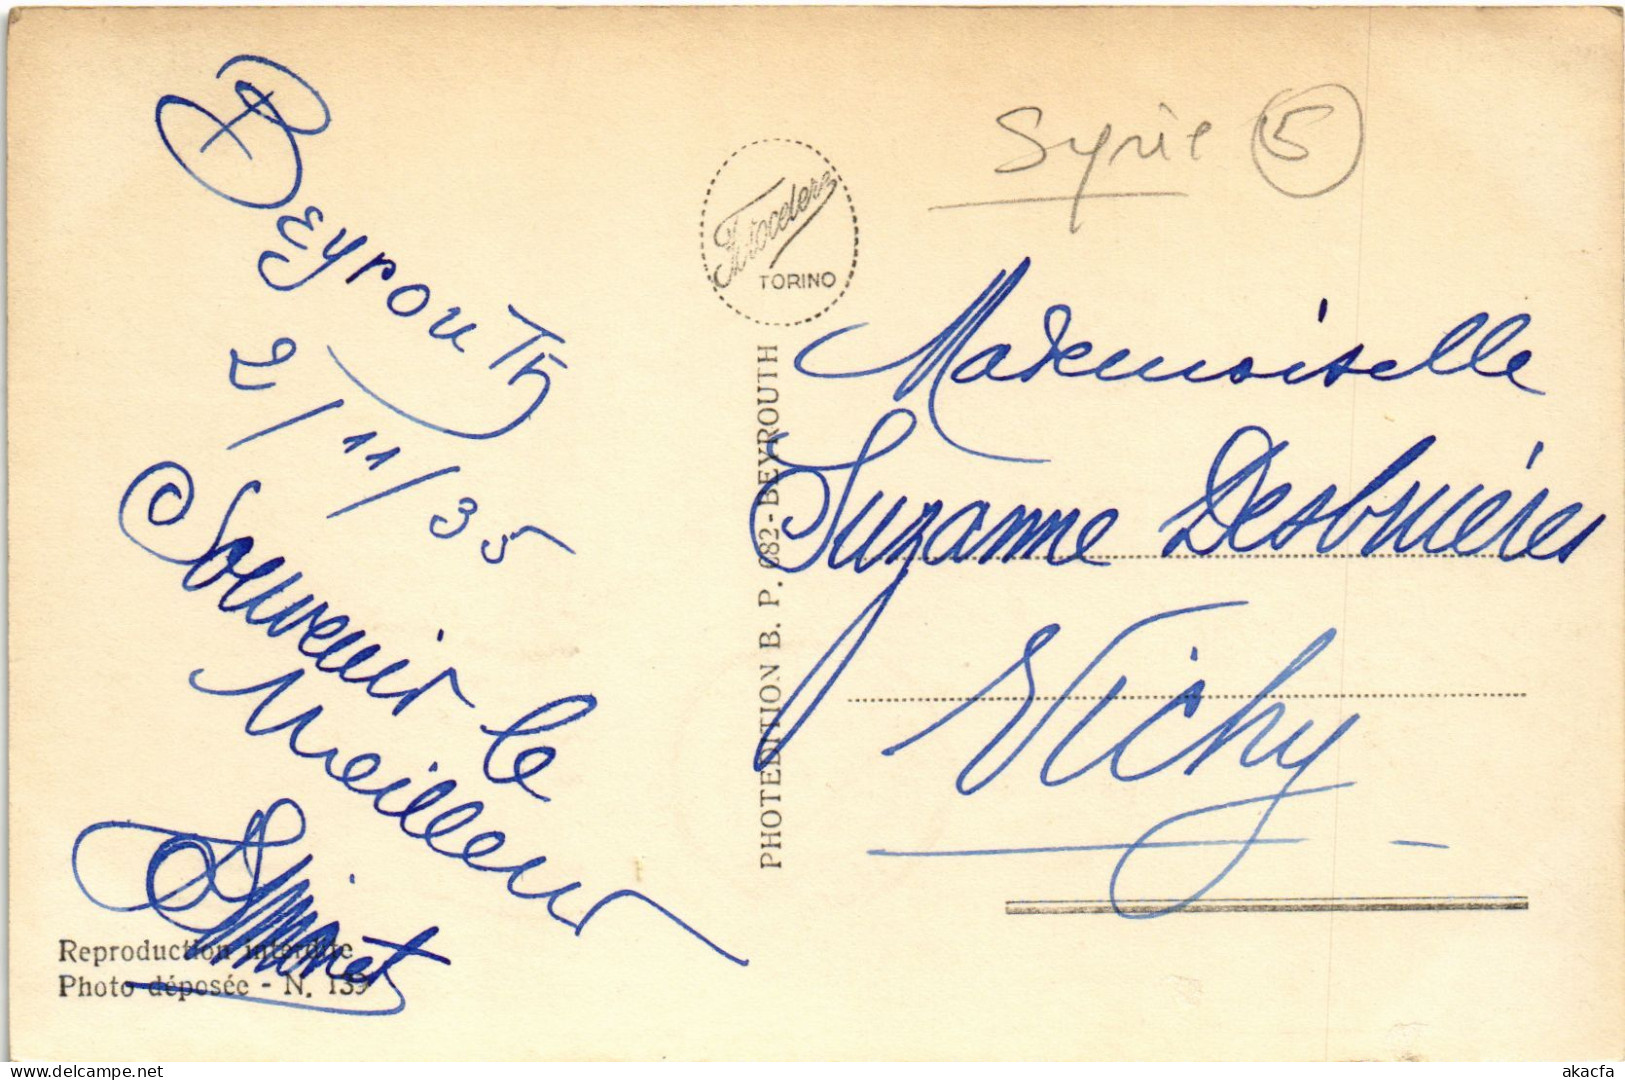 Beyrouth
2/11/35
Souvenir le
Meilleur
Reproduction interdite
Photo déposée - N. 139
TORINO
PHOTEDITION B. P. 682-BEYROUTH
Syrie 5
Mademoiselle
Suzanne Desbruères
Vichy
akacfa